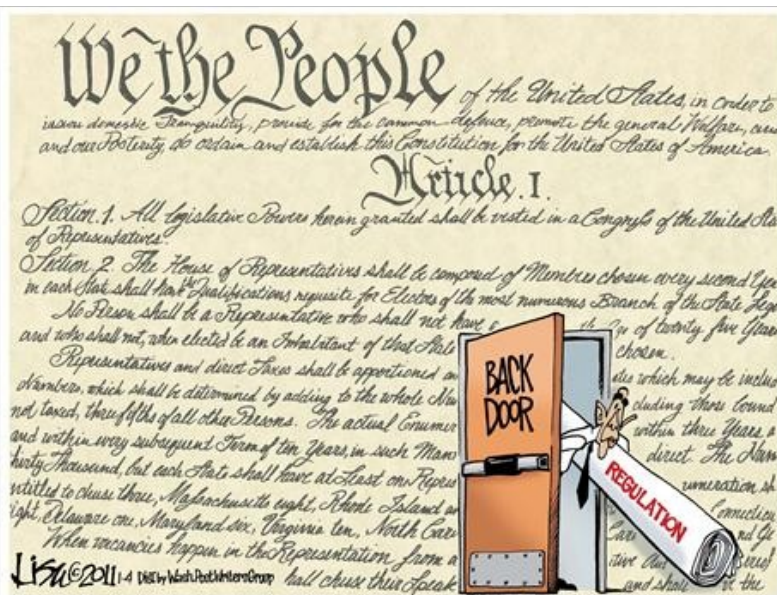 We the People of the United States, in order to
insure domestic Tranquility, provide for the common defence, promote the general Welfare,
and our Posterity, do ordain and establish this Constitution for the United States of America.
Article. I.
Section. 1. All legislative Powers herein granted shall be vested in a Congress of the United Sta
of Representatives.
Section. 2. The House of Representatives shall be composed of Membres chosen every second Yea
in each State shall have the Qualifications requisite for Electors of the most numerous Branch of the State Legi
No Person shall be a Representative who shall not have of twenty five Years
and who shall not, when elected be an Inhabitant of that State chosen.
Representatives and direct Taxes shall be apportioned am which may be includ
Numbers, which shall be determined by adding to the whole Nu cluding those bound
not taxed, three fifths of all other Persons. The actual Enumer within three Years a
and within every subsequent Term of ten Years, in such Mann direct. The Num
hirty Thousand, but each State shall have at Least one Repres umeration sh
ntitled to chuse three, Massachusetts eight, Rhode Island an Connecticu
ight, Delaware one, Maryland six, Virginia ten, North Caro
When vacancies happen in the Representation from a
hall chuse their Speak and shall the
BACK
DOOR
REGULATION
Lisa ©2011 1-4 Dist by WashPostWritersGroup